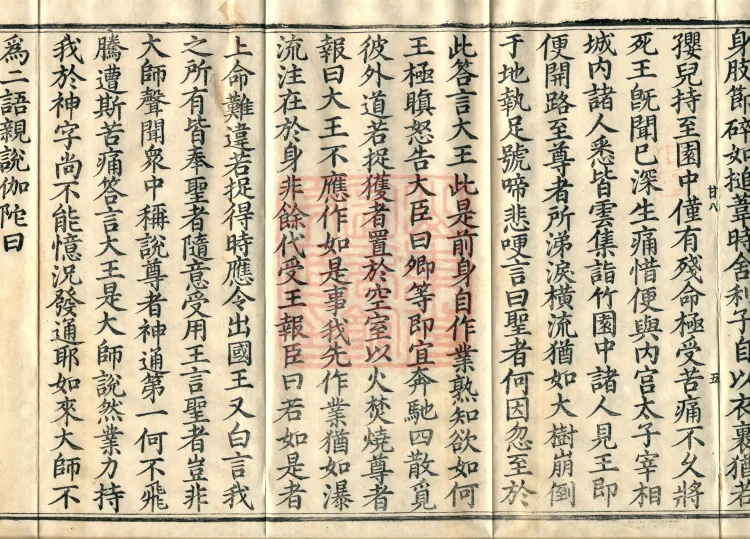 身肢節碎如搥葦時舍利子自以衣裹猶若
廿八
五
孾兒持至園中僅有殘命極受苦痛不久將
死王旣聞已深生痛惜便與內官太子宰相
城內諸人悉皆雲集詣竹園中諸人見王即
便開路至尊者所涕淚橫流猶如大樹崩倒
于地執足號啼悲哽言曰聖者何因忽至於
此答言大王此是前身自作業熟知欲如何
王極瞋怒告大臣曰卿等即宜奔馳四散覓
彼外道若捉獲者置於空室以火焚燒尊者
報曰大王不應作如是事我先作業猶如瀑
流注在於身非餘代受王報臣曰若如是者
上命難違若捉得時應令出國王又白言我
之所有皆奉聖者隨意受用王言聖者豈非
大師聲聞衆中稱說尊者神通第一何不飛
騰遭斯苦痛答言大王是大師說然業力持
我於神字尚不能憶況發通耶如來大師不
爲二語親說伽陀曰